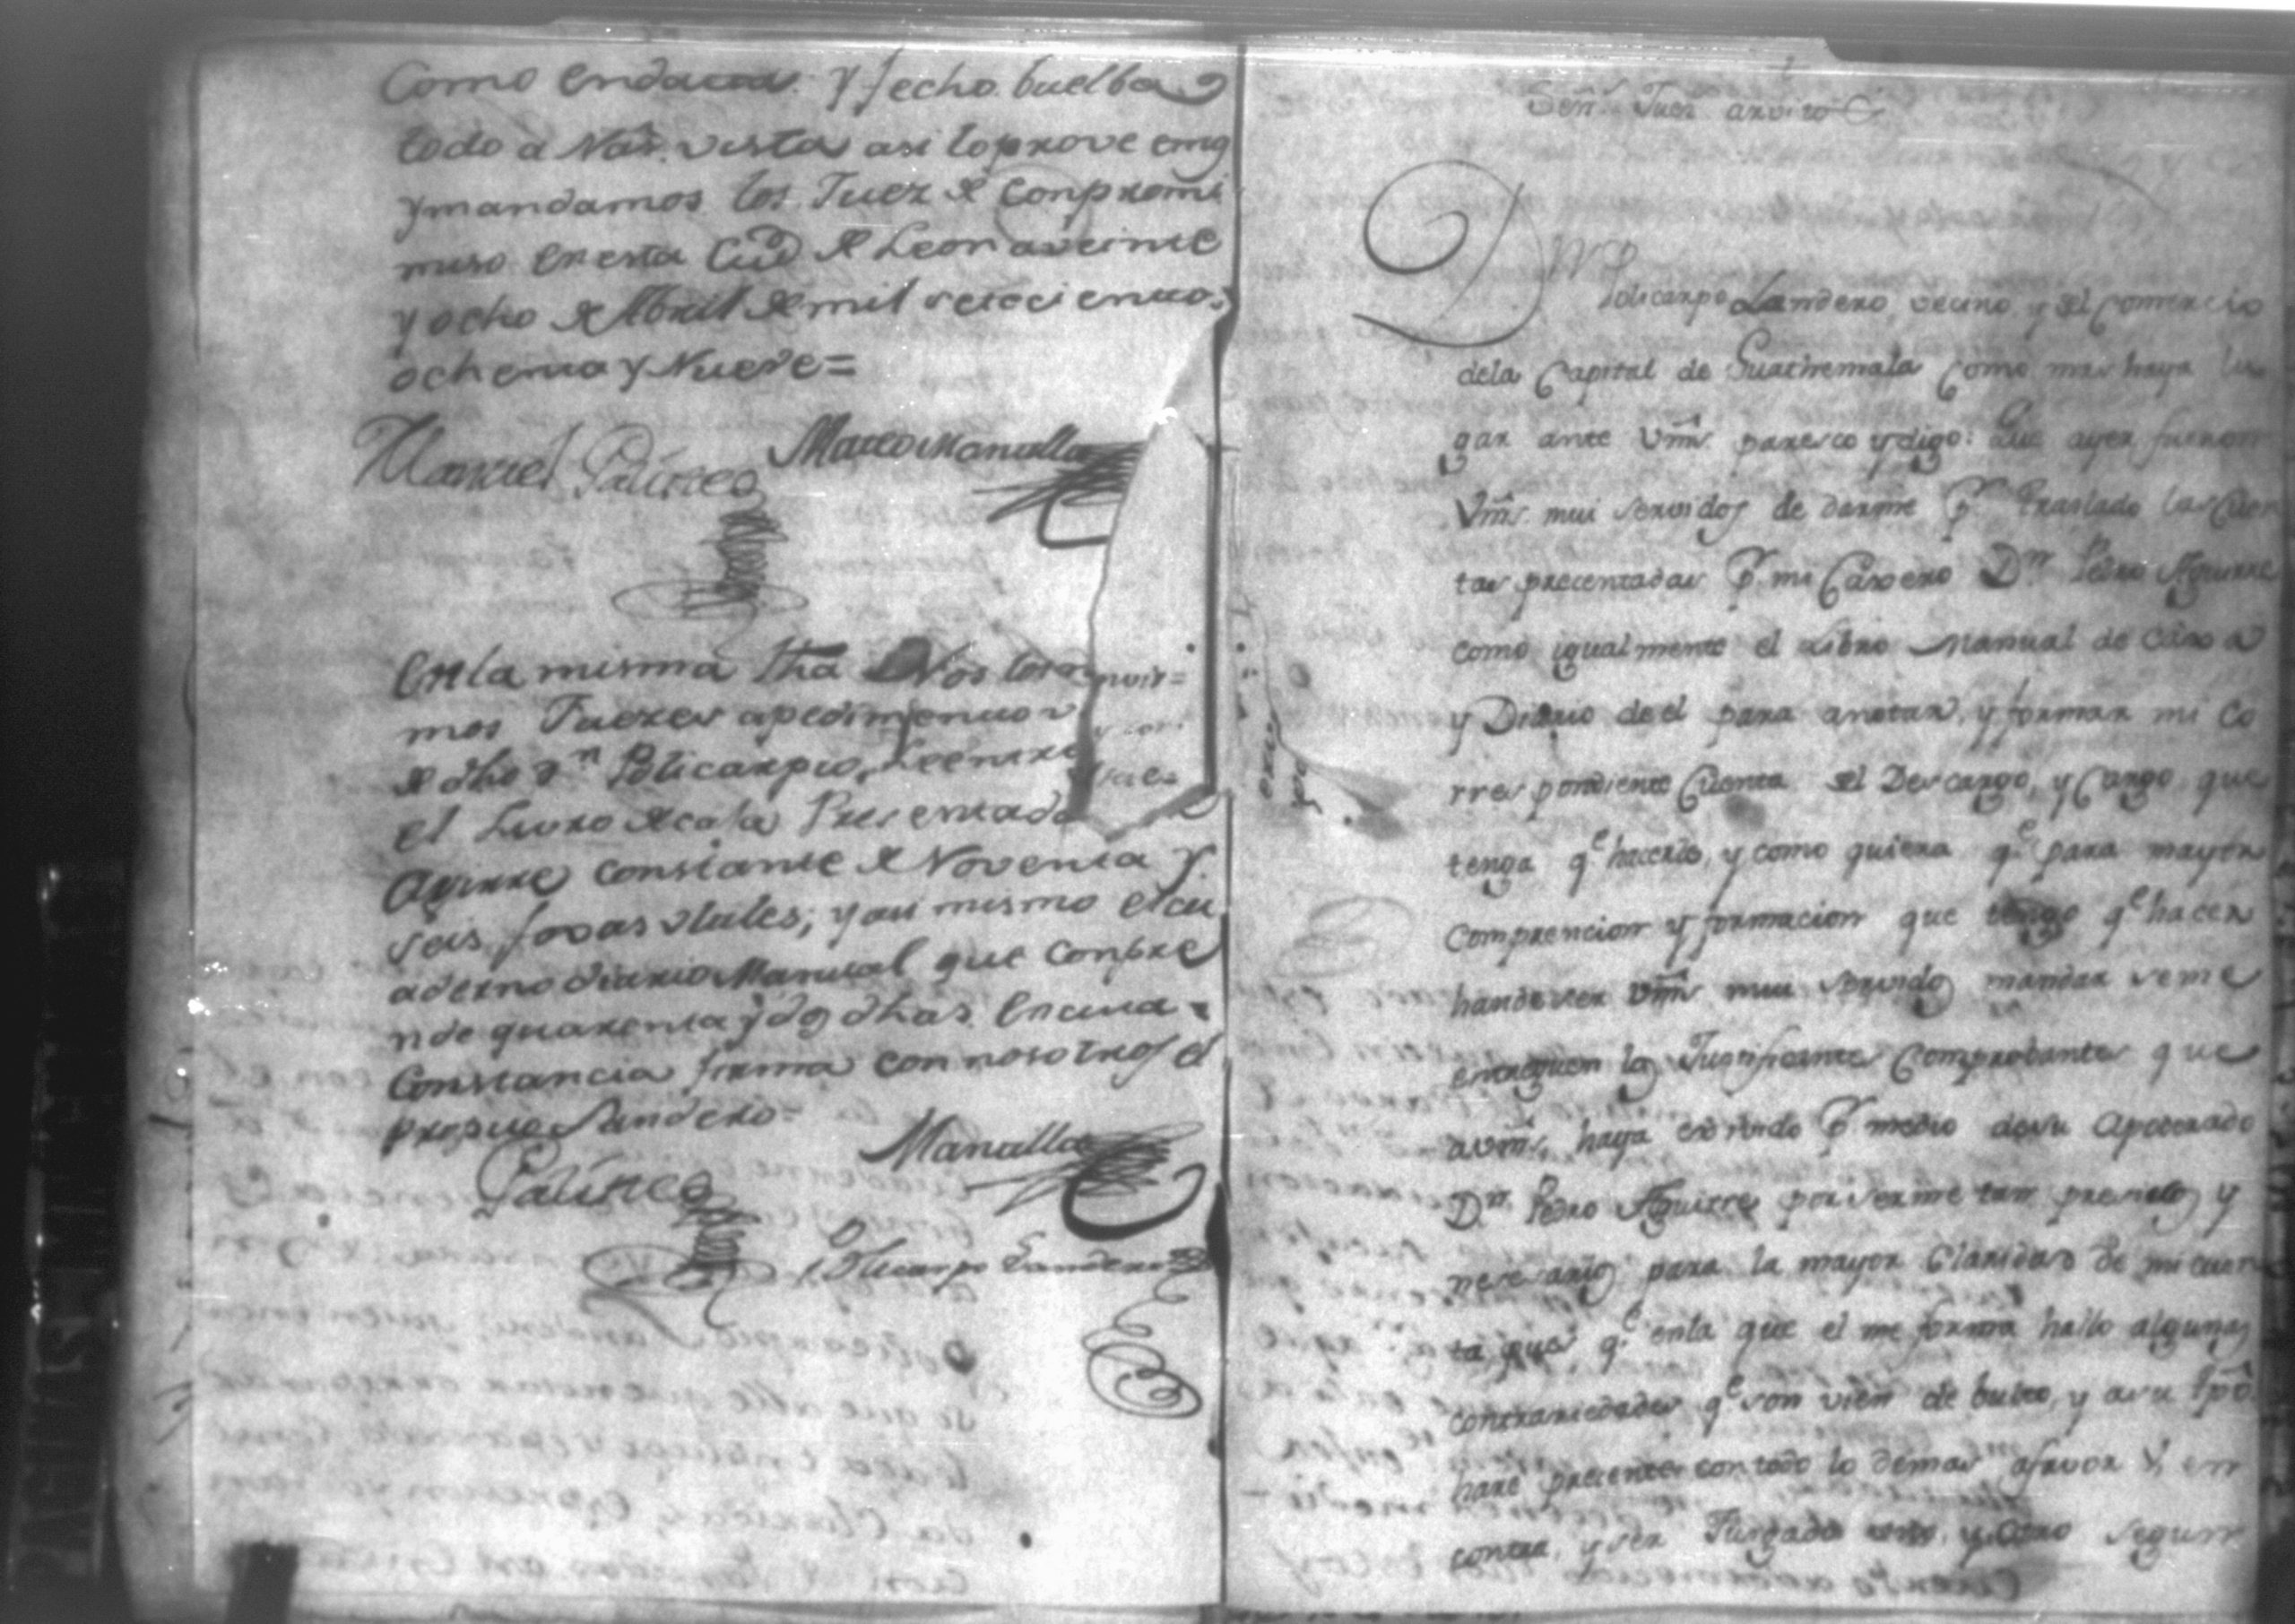 Como endacta y fecho buelba
todo a Nrã. vista asi loproveemọ
ymandamos los Juez de Conpromi
miso en esta Ciud de Leon aveinte
y ocho de Abril de mil setecientos
ochenta y Nueve=
Manuel Galisteo Mateo Mansilla
En la misma fha Nos los
mos Juezes apedimento
de dho Dn Policarpio,
el Livro de caja Presentado
Aguirre constante de Noventa y
seis foxas utiles, y asi mismo el cu
aderno diario Manual que Conpre
nde quarenta y dos dhas. En cuia
Constancia firma con nosotros el
propio Landero=
Galisteo Mansilla
Policarpo Landero
Señ.s Juez arvitro
Dn
Policarpo Landero, vecino y del Comercio
dela Capital de Guathemala como mas haya lu
gar ante Vms. paresco y digo: Que ayer fueron
Vms. mui servidos de darme pr. traslado las Cuen
tas precentadas pr. mi Caxero Dn. Pedro Aguirre
como igualmente el Libro Manual de Caxa
y Diario de el para anotar, y formar mi Co
rrespondiente Cuenta del Descargo, y Cargo, que
tenga qe. hacerle, y como quiera qe. para mayor
Comprencion y formacion que tengo qe. hacer
hande ser Vms. mui servidos mandar se me
entreguen los Justificantes Comprobantes que
a vms, haya exivido pr. medio de su Apoderado
Dn. Pedro Aguirre por serme tan presisos y
nesesarios para la mayor Claridad de mi cuen
ta, pues qe. en la que el me forma hallo algunas
contrariedades qe. son vien de bulto, y a su tpô.
hare precente con todo lo demas afavor y en
contra, y ser Jusgado uno, y otro segun